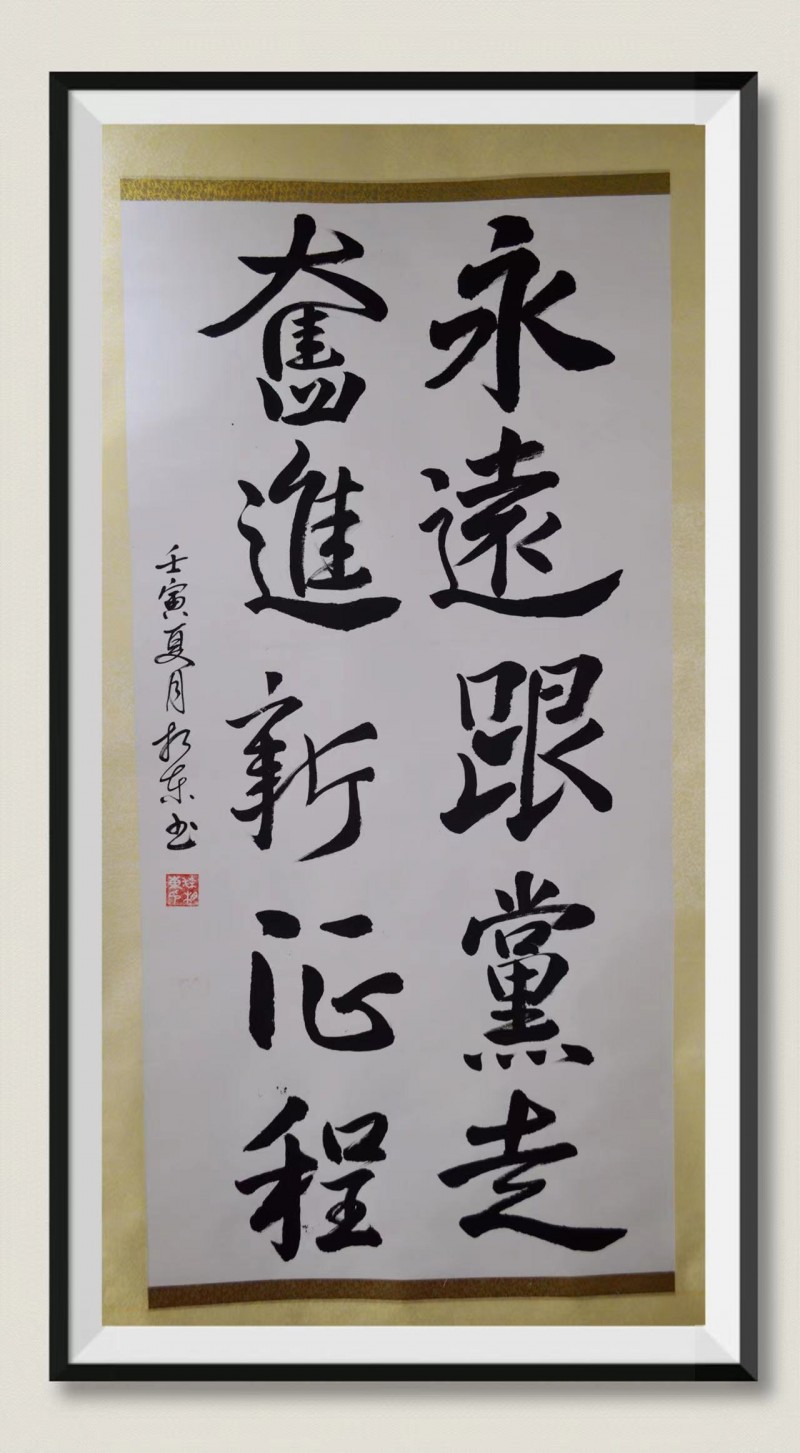 永遠跟黨走
奮進新征程
壬寅夏月东书